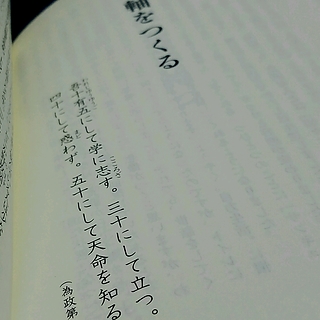 軸をつくる
吾十有五にして学に志す。三十にして立つ。
四十にして惑わず。五十にして天命を知る
(為政第